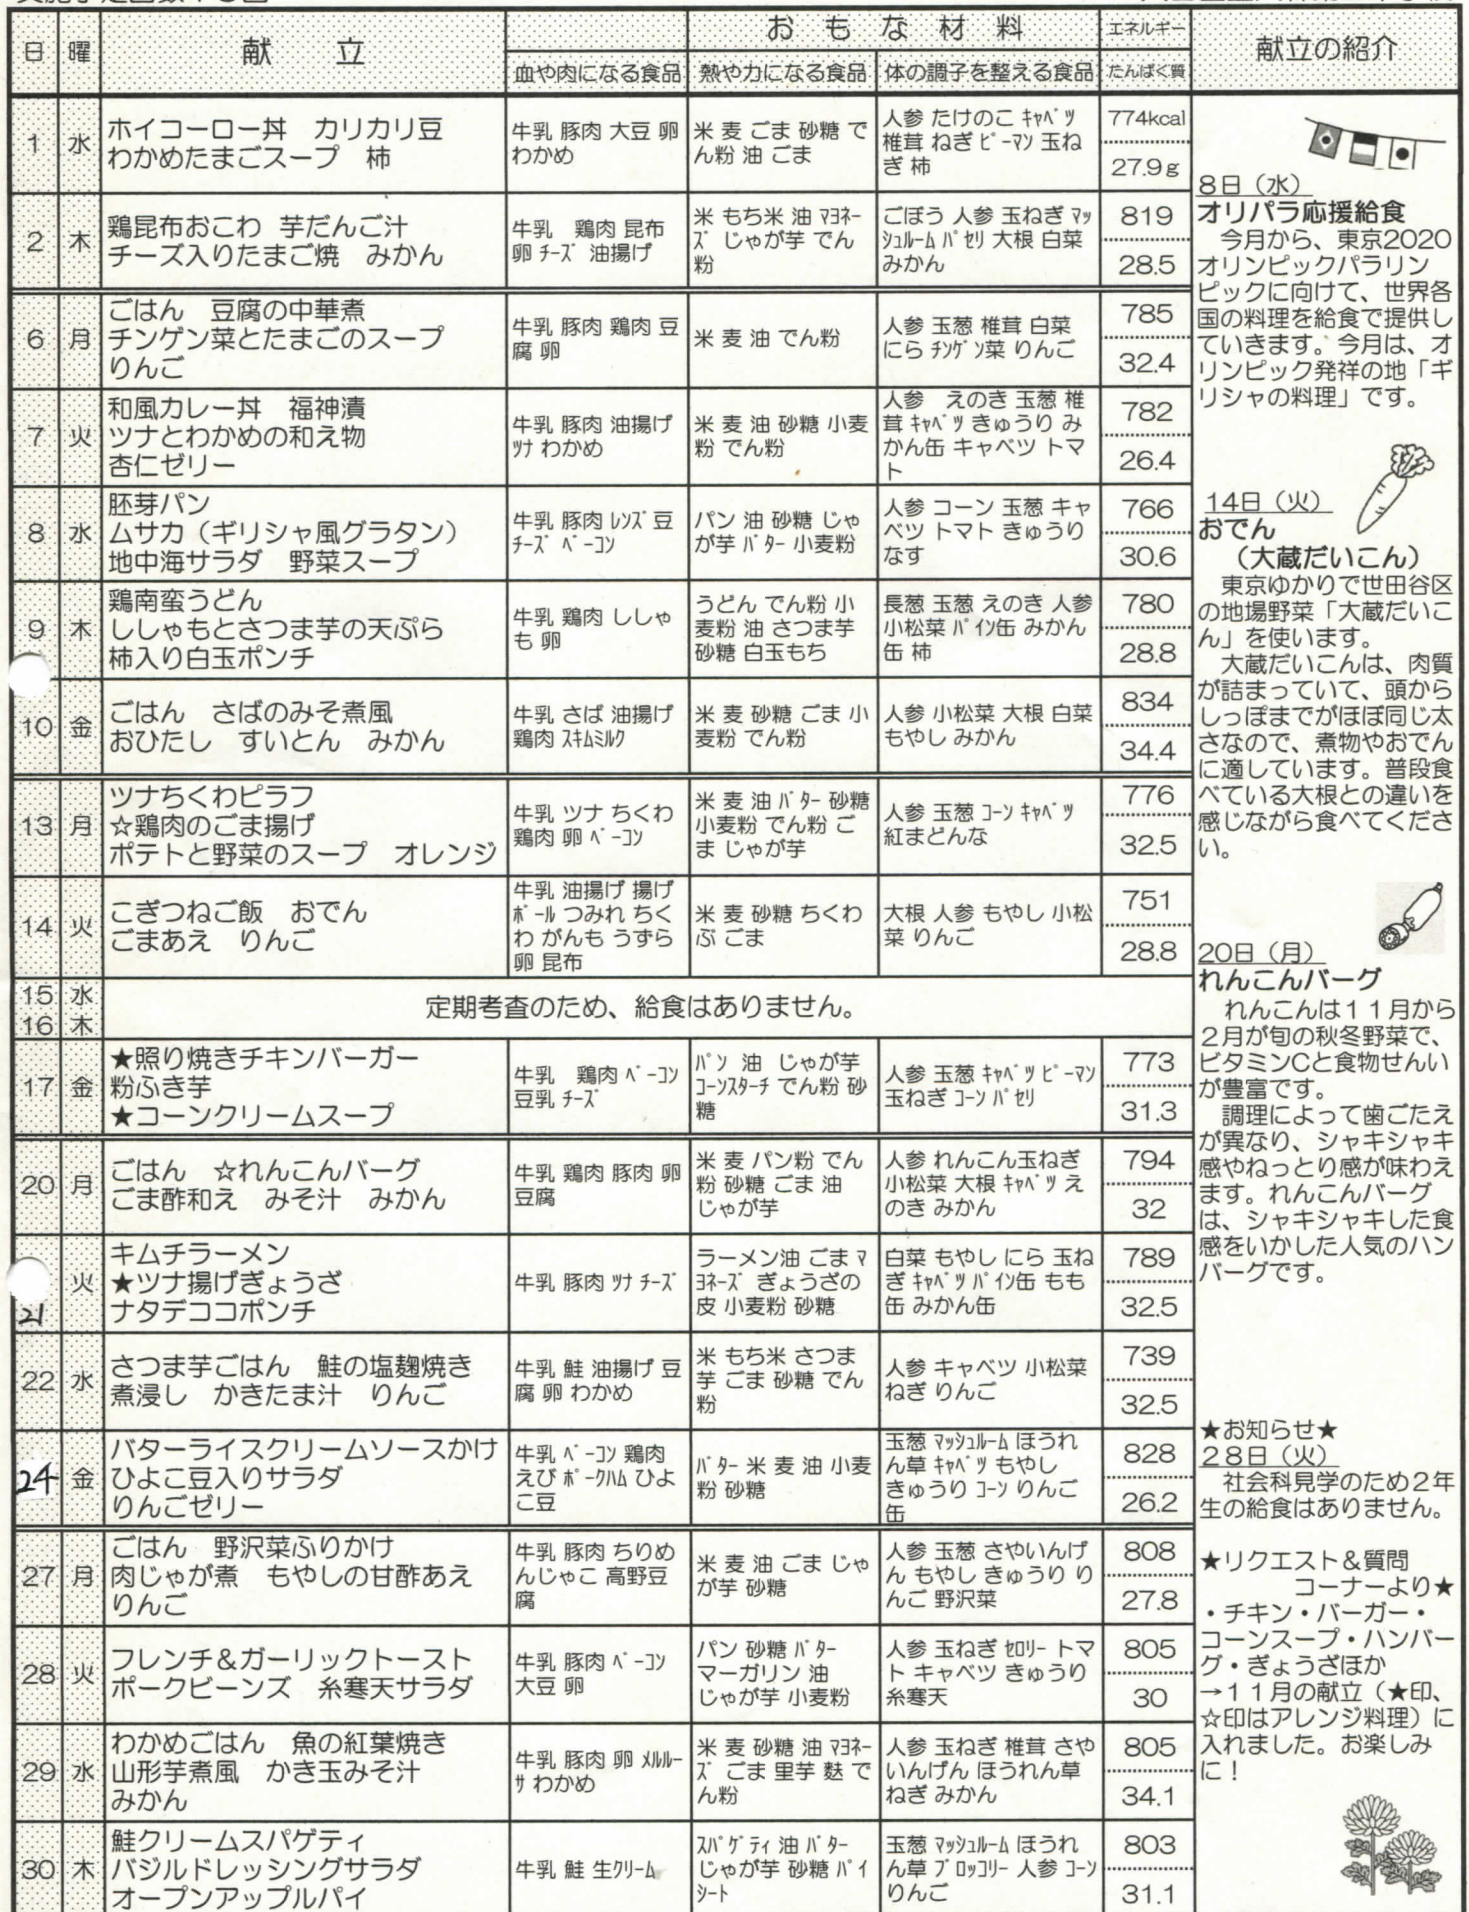 日 曜 献立 おもな材料 エネルギー 献立の紹介
血や肉になる食品 熱や力になる食品 体の調子を整える食品 たんぱく質
1 水
ホイコーロー丼 カリカリ豆
わかめたまごスープ 柿
牛乳 豚肉 大豆 卵
わかめ
米 麦 ごま 砂糖 で
ん粉 油 ごま
人参 たけのこ ｷｬﾍﾞﾂ
椎茸 ねぎ ﾋﾟｰﾏﾝ 玉ね
ぎ 柿
774kcal
27.9g
2 木
鶏昆布おこわ 芋だんご汁
チーズ入りたまご焼 みかん
牛乳 鶏肉 昆布
卵 ﾁｰｽﾞ 油揚げ
米 もち米 油 ﾏﾖﾈｰ
ｽﾞ じゃが芋 でん
粉
ごぼう 人参 玉ねぎ ﾏｯ
ｼｭﾙｰﾑ ﾊﾟｾﾘ 大根 白菜
みかん
819
28.5
6 月
ごはん 豆腐の中華煮
チンゲン菜とたまごのスープ
りんご
牛乳 豚肉 鶏肉 豆
腐 卵
米 麦 油 でん粉
人参 玉葱 椎茸 白菜
にら ﾁﾝｹﾞﾝ菜 りんご
785
32.4
7 火
和風カレー丼 福神漬
ツナとわかめの和え物
杏仁ゼリー
牛乳 豚肉 油揚げ
ﾂﾅ わかめ
米 麦 油 砂糖 小麦
粉 でん粉
人参 えのき 玉葱 椎
茸 ｷｬﾍﾞﾂ きゅうり み
かん缶 キャベツ トマ
ト
782
26.4
8 水
胚芽パン
ムサカ（ギリシャ風グラタン）
地中海サラダ 野菜スープ
牛乳 豚肉 ﾚﾝｽﾞ豆
ﾁｰｽﾞ ﾍﾞｰｺﾝ
パン 油 砂糖 じゃ
が芋 ﾊﾞﾀｰ 小麦粉
人参 コーン 玉葱 キャ
ベツ トマト きゅうり
なす
766
30.6
9 木
鶏南蛮うどん
ししゃもとさつま芋の天ぷら
柿入り白玉ポンチ
牛乳 鶏肉 ししゃ
も 卵
うどん でん粉 小
麦粉 油 さつま芋
砂糖 白玉もち
長葱 玉葱 えのき 人参
小松菜 ﾊﾟｲﾝ缶 みかん
缶 柿
780
28.8
10 金
ごはん さばのみそ煮風
おひたし すいとん みかん
牛乳 さば 油揚げ
鶏肉 ｽｷﾑﾐﾙｸ
米 麦 砂糖 ごま 小
麦粉 でん粉
人参 小松菜 大根 白菜
もやし みかん
834
34.4
13 月
ツナちくわピラフ
☆鶏肉のごま揚げ
ポテトと野菜のスープ オレンジ
牛乳 ツナ ちくわ
鶏肉 卵 ﾍﾞｰｺﾝ
米 麦 油 ﾊﾞﾀｰ 砂糖
小麦粉 でん粉 ご
ま じゃが芋
人参 玉葱 ｺｰﾝ ｷｬﾍﾞﾂ
紅まどんな
776
32.5
14 火
こぎつねご飯 おでん
ごまあえ りんご
牛乳 油揚げ 揚げ
ﾎﾞｰﾙ つみれ ちく
わ がんも うずら
卵 昆布
米 麦 砂糖 ちくわ
ぶ ごま
大根 人参 もやし 小松
菜 りんご
751
28.8
15 水
16 木
定期考査のため、給食はありません。
17 金
★照り焼きチキンバーガー
粉ふき芋
★コーンクリームスープ
牛乳 鶏肉 ﾍﾞｰｺﾝ
豆乳 ﾁｰｽﾞ
ﾊﾟﾝ 油 じゃが芋
ｺｰﾝｽﾀｰﾁ でん粉 砂
糖
人参 玉葱 ｷｬﾍﾞﾂ ﾋﾟｰﾏﾝ
玉ねぎ ｺｰﾝ ﾊﾟｾﾘ
773
31.3
20 月
ごはん ☆れんこんバーグ
ごま酢和え みそ汁 みかん
牛乳 鶏肉 豚肉 卵
豆腐
米 麦 パン粉 でん
粉 砂糖 ごま 油
じゃが芋
人参 れんこん玉ねぎ
小松菜 大根 ｷｬﾍﾞﾂ え
のき みかん
794
32
21 火
キムチラーメン
★ツナ揚げぎょうざ
ナタデココポンチ
牛乳 豚肉 ﾂﾅ ﾁｰｽﾞ
ラーメン油 ごま ﾏ
ﾖﾈｰｽﾞ ぎょうざの
皮 小麦粉 砂糖
白菜 もやし にら 玉ね
ぎ ｷｬﾍﾞﾂ ﾊﾟｲﾝ缶 もも
缶 みかん缶
789
32.5
22 水
さつま芋ごはん 鮭の塩麹焼き
煮浸し かきたま汁 りんご
牛乳 鮭 油揚げ 豆
腐 卵 わかめ
米 もち米 さつま
芋 ごま 砂糖 でん
粉
人参 キャベツ 小松菜
ねぎ りんご
739
32.5
24 金
バターライスクリームソースかけ
ひよこ豆入りサラダ
りんごゼリー
牛乳 ﾍﾞｰｺﾝ 鶏肉
えび ﾎﾟｰｸﾊﾑ ひよ
こ豆
ﾊﾞﾀｰ 米 麦 油 小麦
粉 砂糖
玉葱 ﾏｯｼｭﾙｰﾑ ほうれ
ん草 ｷｬﾍﾞﾂ もやし
きゅうり ｺｰﾝ りんご
缶
828
26.2
27 月
ごはん 野沢菜ふりかけ
肉じゃが煮 もやしの甘酢あえ
りんご
牛乳 豚肉 ちりめ
んじゃこ 高野豆
腐
米 麦 油 ごま じゃ
が芋 砂糖
人参 玉葱 さやいんげ
ん もやし きゅうり り
んご 野沢菜
808
27.8
28 火
フレンチ＆ガーリックトースト
ポークビーンズ 糸寒天サラダ
牛乳 豚肉 ﾍﾞｰｺﾝ
大豆 卵
パン 砂糖 ﾊﾞﾀｰ
マーガリン 油
じゃが芋 小麦粉
人参 玉ねぎ ｾﾛﾘｰ トマ
ト キャベツ きゅうり
糸寒天
805
30
29 水
わかめごはん 魚の紅葉焼き
山形芋煮風 かき玉みそ汁
みかん
牛乳 豚肉 卵 ﾒﾙﾙｰ
ｻ わかめ
米 麦 砂糖 油 ﾏﾖﾈｰ
ｽﾞ ごま 里芋 麩 で
ん粉
人参 玉ねぎ 椎茸 さや
いんげん ほうれん草
ねぎ みかん
805
34.1
30 木
鮭クリームスパゲティ
バジルドレッシングサラダ
オープンアップルパイ
牛乳 鮭 生ｸﾘｰﾑ
ｽﾊﾟｹﾞﾃｨ 油 ﾊﾞﾀｰ
じゃが芋 砂糖 パイ
ｼｰﾄ
玉葱 ﾏｯｼｭﾙｰﾑ ほうれ
ん草 ﾌﾞﾛｯｺﾘｰ 人参 ｺｰﾝ
りんご
803
31.1
8日（水）
オリパラ応援給食
今月から、東京2020
オリンピックパラリン
ピックに向けて、世界各
国の料理を給食で提供し
ていきます。今月は、オ
リンピック発祥の地「ギ
リシャの料理」です。
14日（火）
おでん
（大蔵だいこん）
東京ゆかりで世田谷区
の地場野菜「大蔵だいこ
ん」を使います。
大蔵だいこんは、肉質
が詰まっていて、頭から
しっぽまでがほぼ同じ太
さなので、煮物やおでん
に適しています。普段食
べている大根との違いを
感じながら食べてくださ
い。
20日（月）
れんこんバーグ
れんこんは１１月から
２月が旬の秋冬野菜で、
ビタミンCと食物せんい
が豊富です。
調理によって歯ごたえ
が異なり、シャキシャキ
感やねっとり感が味わえ
ます。れんこんバーグ
は、シャキシャキした食
感をいかした人気のハン
バーグです。
★お知らせ★
２８日（火）
社会科見学のため２年
生の給食はありません。
★リクエスト＆質問
コーナーより★
・チキン・バーガー・
コーンスープ・ハンバー
グ・ぎょうざほか
→１１月の献立（★印、
☆印はアレンジ料理）に
入れました。お楽しみ
に！